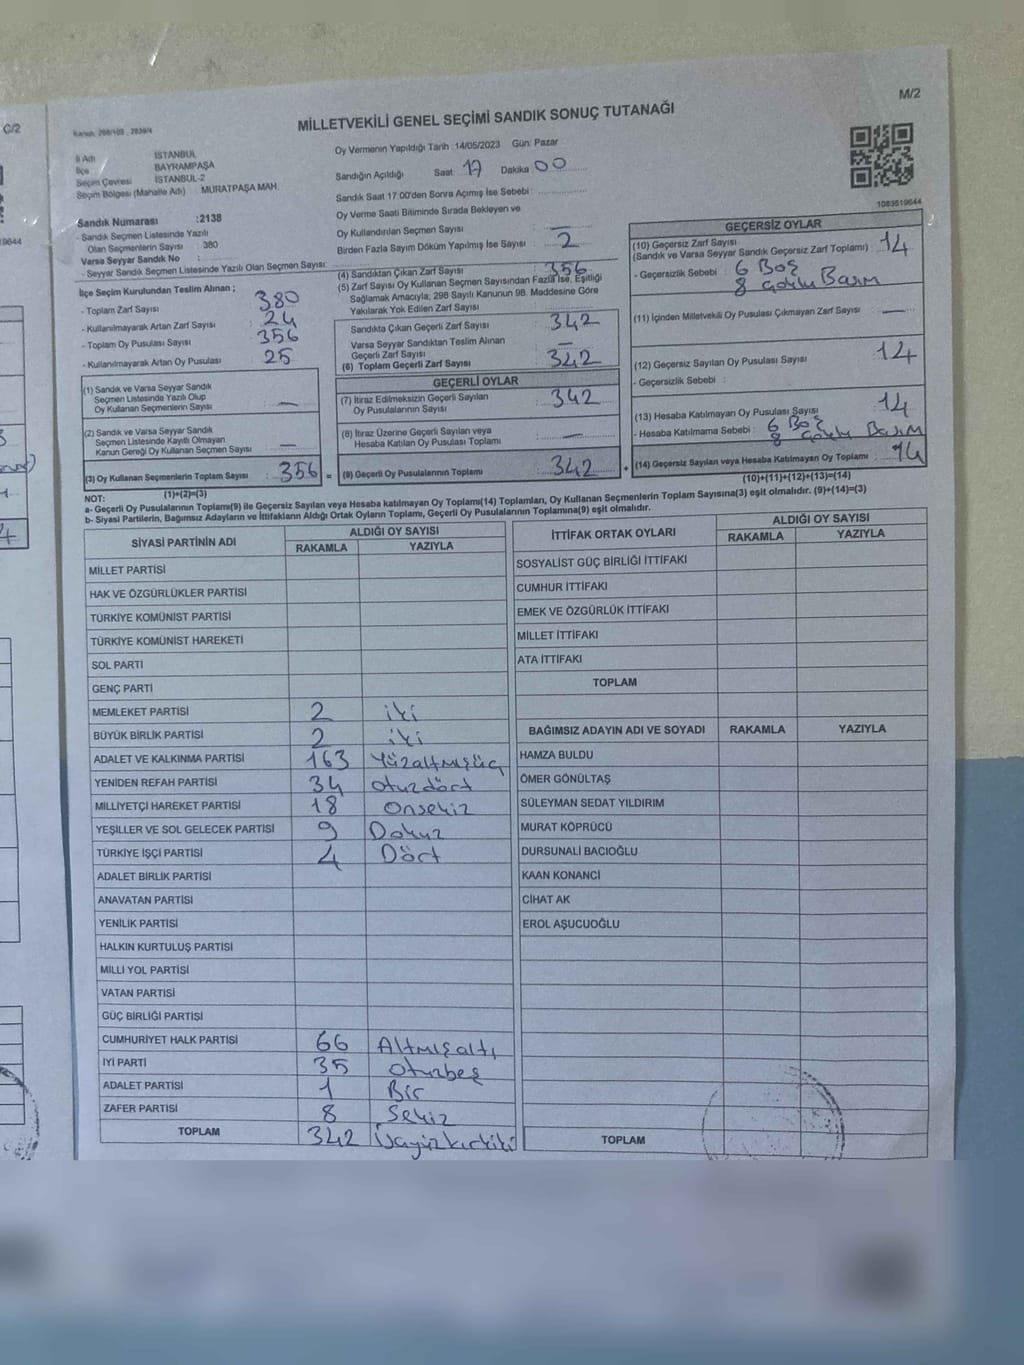 C/2
M/2
MİLLETVEKİLİ GENEL SEÇİMİ SANDIK SONUÇ TUTANAĞI
1083619644
İl Adı İSTANBUL
İlçe BAYRAMPAŞA
Seçim Çevresi İSTANBUL-2
Seçim Bölgesi (Mahalle Adı) MURATPAŞA MAH.
Sandık Numarası :2138
- Sandık Seçmen Listesinde Yazılı
Olan Seçmenlerin Sayısı : 380
Varsa Seyyar Sandık No :
- Seyyar Sandık Seçmen Listesinde Yazılı Olan Seçmen Sayısı :
Oy Vermenin Yapıldığı Tarih : 14/05/2023 Gün: Pazar
Sandığın Açıldığı Saat 17 Dakika 00
Sandık Saat 17:00'den Sonra Açımış İse Sebebi :
Oy Verme Saati Bitiminde Sırada Bekleyen ve
Oy Kullandırılan Seçmen Sayısı : —
Birden Fazla Sayım Döküm Yapılmış İse Sayısı : 2
İlçe Seçim Kurulundan Teslim Alınan ;
- Toplam Zarf Sayısı : 380
- Kullanılmayarak Artan Zarf Sayısı : 24
- Toplam Oy Pusulası Sayısı : 356
- Kullanılmayarak Artan Oy Pusulası : 25
(1) Sandık ve Varsa Seyyar Sandık
Seçmen Listesinde Yazılı Olup
Oy Kullanan Seçmenlerin Sayısı : —
(2) Sandık ve Varsa Seyyar Sandık
Seçmen Listesinde Kayıtlı Olmayan
Kanun Gereği Oy Kullanan Seçmen Sayısı : —
(3) Oy Kullanan Seçmenlerin Toplam Sayısı : 356 =
(1)+(2)=(3)
(4) Sandıktan Çıkan Zarf Sayısı : 356
(5) Zarf Sayısı Oy Kullanan Seçmen Sayısından Fazla İse, Eşitliği
Sağlamak Amacıyla, 298 Sayılı Kanunun 98. Maddesine Göre
Yakılarak Yok Edilen Zarf Sayısı :
Sandıkta Çıkan Geçerli Zarf Sayısı : 342
Varsa Seyyar Sandıktan Teslim Alınan
Geçerli Zarf Sayısı : —
(6) Toplam Geçerli Zarf Sayısı : 342
GEÇERLİ OYLAR
(7) İtiraz Edilmeksizin Geçerli Sayılan
Oy Pusulasının Sayısı : 342
(8) İtiraz Üzerine Geçerli Sayılan veya
Hesaba Katılan Oy Pusulası Toplamı : —
(9) Geçerli Oy Pusulalarının Toplamı : 342 +
GEÇERSİZ OYLAR
(10) Geçersiz Zarf Sayısı
(Sandık ve Varsa Seyyar Sandık Geçersiz Zarf Toplamı) : 14
- Geçersizlik Sebebi : 6 Boş
8 Çoklu Basım
(11) İçinden Milletvekili Oy Pusulası Çıkmayan Zarf Sayısı : —
(12) Geçersiz Sayılan Oy Pusulası Sayısı : 14
- Geçersizlik Sebebi :
(13) Hesaba Katılmayan Oy Pusulası Sayısı : 14
- Hesaba Katılmama Sebebi : 6 Boş
8 Çoklu Basım
(14) Geçersiz Sayılan veya Hesaba Katılmayan Oy Toplamı : 14
(10)+(11)+(12)+(13)=(14)
NOT:
a- Geçerli Oy Pusulalarının Toplamı(9) ile Geçersiz Sayılan veya Hesaba katılmayan Oy Toplamı(14) Toplamları, Oy Kullanan Seçmenlerin Toplam Sayısına(3) eşit olmalıdır. (9)+(14)=(3)
b- Siyasi Partilerin, Bağımsız Adayların ve İttifakların Aldığı Ortak Oyların Toplamı, Geçerli Oy Pusulalarının Toplamına(9) eşit olmalıdır.
SİYASİ PARTİNİN ADI ALDIĞI OY SAYISI
RAKAMLA YAZIYLA
MİLLET PARTİSİ
HAK VE ÖZGÜRLÜKLER PARTİSİ
TÜRKİYE KOMÜNİST PARTİSİ
TÜRKİYE KOMÜNİST HAREKETİ
SOL PARTİ
GENÇ PARTİ
MEMLEKET PARTİSİ 2 iki
BÜYÜK BİRLİK PARTİSİ 2 iki
ADALET VE KALKINMA PARTİSİ 163 Yüzaltmışüç
YENİDEN REFAH PARTİSİ 34 otuzdört
MİLLİYETÇİ HAREKET PARTİSİ 18 Onsekiz
YEŞİLLER VE SOL GELECEK PARTİSİ 9 Dokuz
TÜRKİYE İŞÇİ PARTİSİ 4 Dört
ADALET BİRLİK PARTİSİ
ANAVATAN PARTİSİ
YENİLİK PARTİSİ
HALKIN KURTULUŞ PARTİSİ
MİLLİ YOL PARTİSİ
VATAN PARTİSİ
GÜÇ BİRLİĞİ PARTİSİ
CUMHURİYET HALK PARTİSİ 66 Altmışaltı
İYİ PARTİ 35 otuzbeş
ADALET PARTİSİ 1 Bir
ZAFER PARTİSİ 8 Sekiz
TOPLAM 342 Üçyüzkırkiki
İTTİFAK ORTAK OYLARI ALDIĞI OY SAYISI
RAKAMLA YAZIYLA
SOSYALİST GÜÇ BİRLİĞİ İTTİFAKI
CUMHUR İTTİFAKI
EMEK VE ÖZGÜRLÜK İTTİFAKI
MİLLET İTTİFAKI
ATA İTTİFAKI
TOPLAM
BAĞIMSIZ ADAYIN ADI VE SOYADI RAKAMLA YAZIYLA
HAMZA BULDU
ÖMER GÖNÜLTAŞ
SÜLEYMAN SEDAT YILDIRIM
MURAT KÖPRÜCÜ
DURSUNALİ BACIOĞLU
KAAN KONANCİ
CİHAT AK
EROL AŞUCUOĞLU
TOPLAM